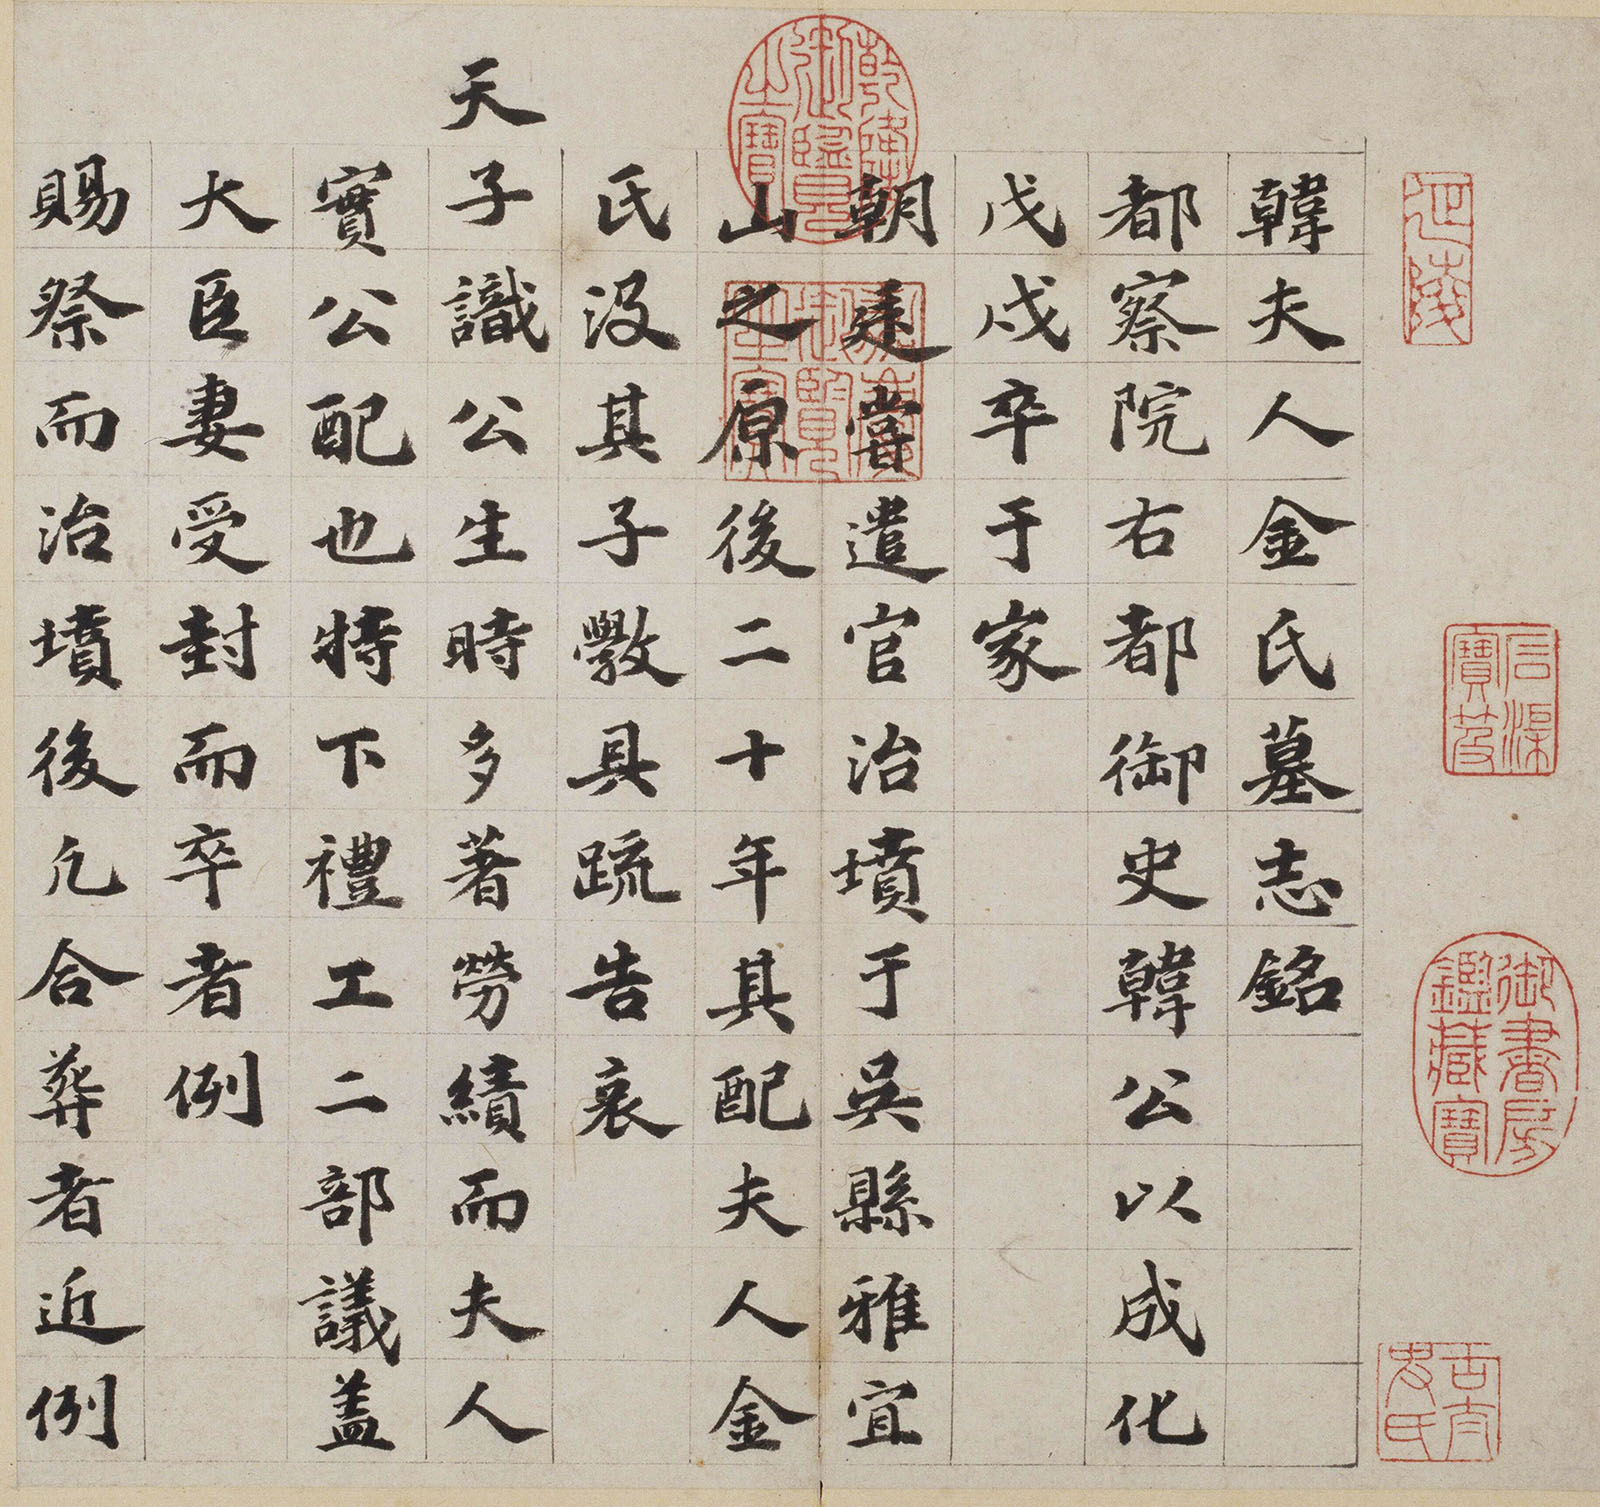 韓夫人金氏墓志銘
都察院右都御史韓公以成化
戊戌卒于家
朝廷嘗遣官治墳于吳縣雅宜
山之原後二十年其配夫人金
氏沒其子斆具疏告哀
天子識公生時多著勞績而夫人
實公配也特下禮工二部議蓋
大臣妻受封而卒者例
賜祭而治墳後凢合葬者近例
乾隆御鑑之寶
御書房鑑藏寶